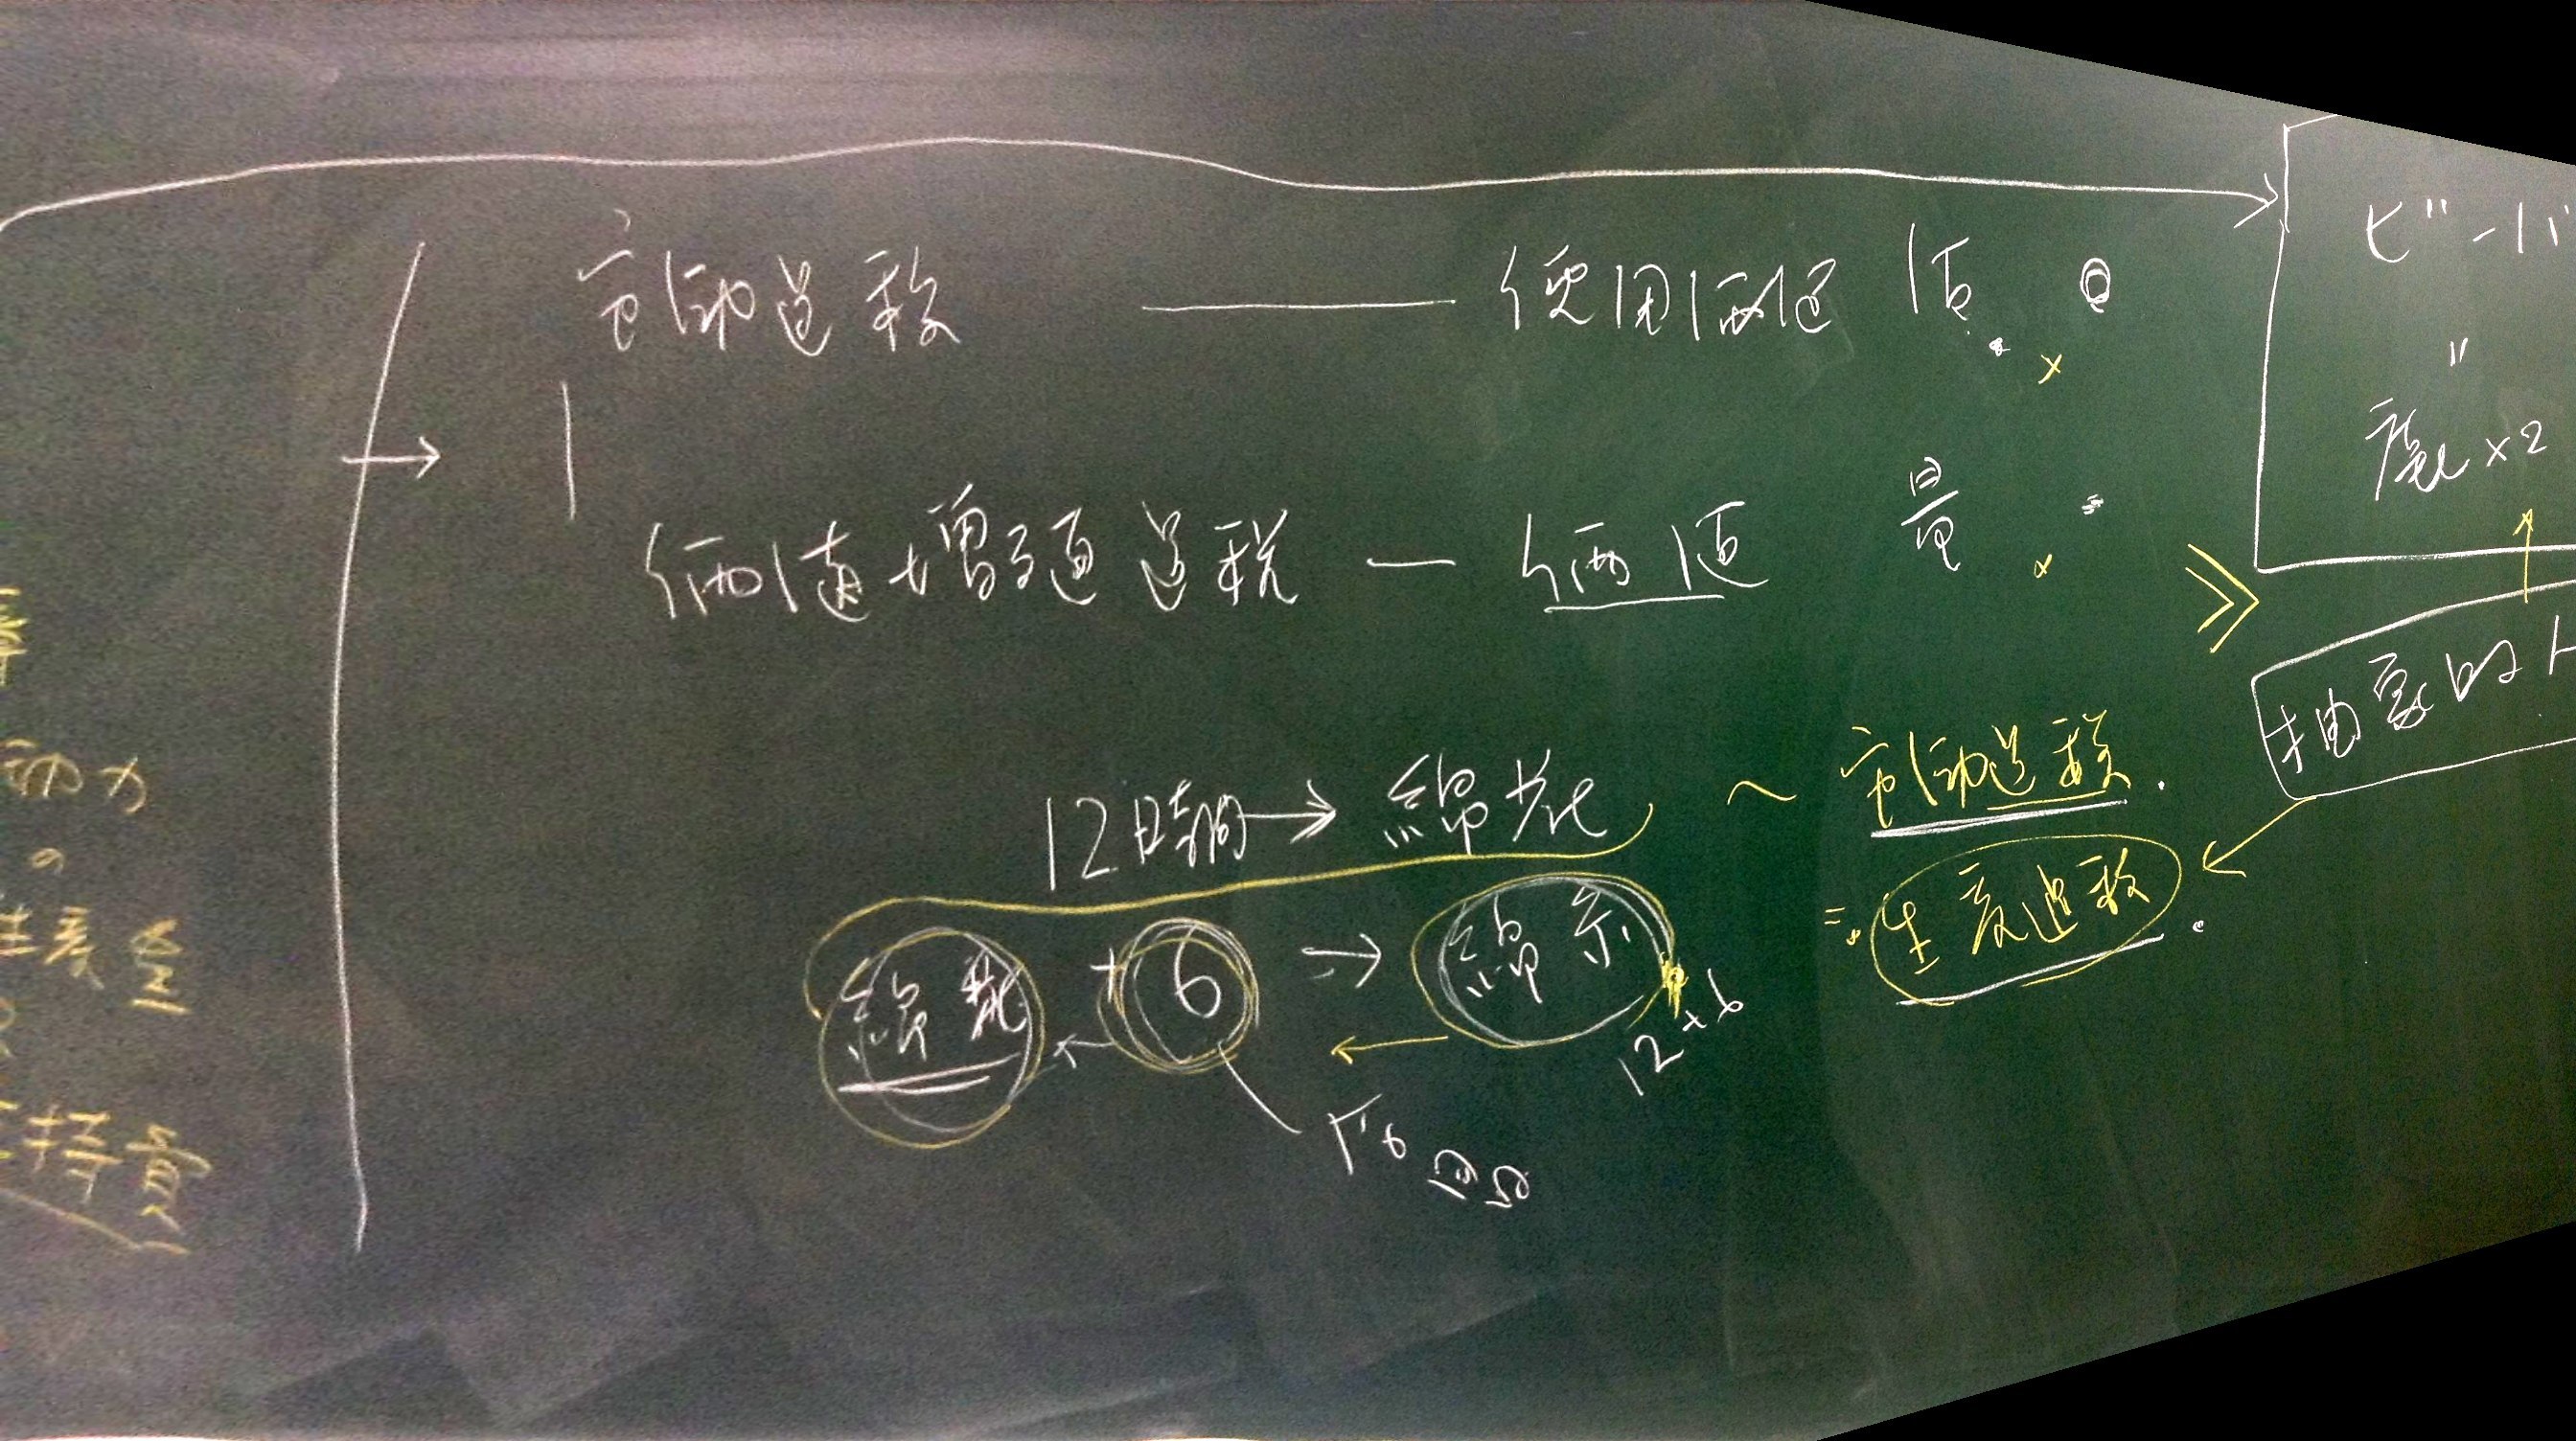 労働過程 —— 使用価値 質
価値増殖過程 — 価値 量
ビーバー
〃
鹿×2
抽象的人
12時間→綿花 ~ 労働過程.
綿花 + 6 → 綿糸
12+6
生産過程
動力
の
生産